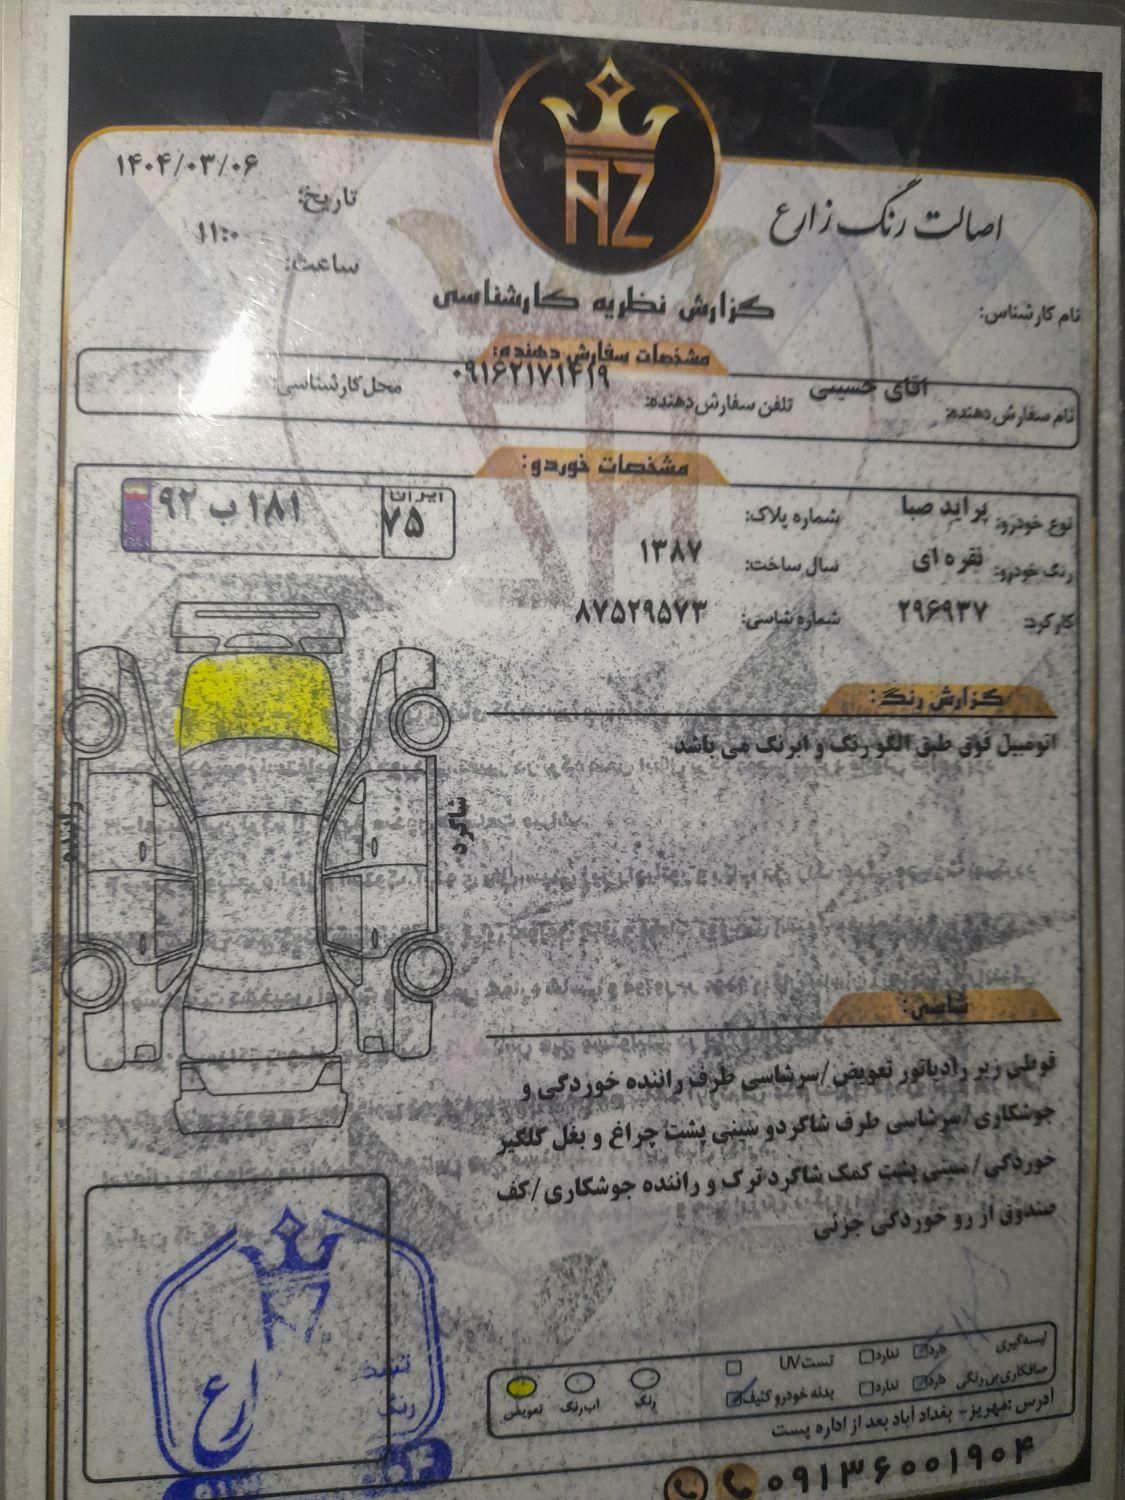 AZ
اصالت رنگ زارع
تاریخ: ۱۴۰۴/۰۳/۰۶
ساعت: ۱۱:۰
گزارش نظریه کارشناسی
نام کارشناس:
مشخصات سفارش دهنده:
نام سفارش دهنده: اقای حسینی تلفن سفارش دهنده: ۰۹۱۶۲۱۷۱۴۱۹ محل کارشناسی:
مشخصات خوردو:
نوع خودرو: پراید صبا شماره پلاک: ایران ۷۵ ۹۲ ب ۱۸۱
رنگ خودرو: نقره ای سال ساخت: ۱۳۸۷
کارکرد: ۲۹۶۹۳۷ شماره شاسی: ۸۷۵۲۹۵۷۳
گزارش رنگ:
اتومبیل فوق طبق الگو رنگ و ابرنگ می باشد
شاگرد
شاسی:
قوطی زیر رادیاتور تعویض/سرشاسی طرف راننده خوردگی و
جوشکاری/سرشاسی طرف شاگردو سینی پشت چراغ و بغل گلگیر
خوردگی/سینی پشت کمک شاگرد ترک و راننده جوشکاری/کف
صندوق از رو خوردگی جزئی
لیسه گیری دارد ندارد تست UV
صافکاری بی رنگی دارد ندارد بدنه خودرو کثیف
رنگ اب رنگ تعویض
ادرس :مهریز- بغداد آباد بعد از اداره پست
۰۹۱۳۶۰۰۱۹۰۴